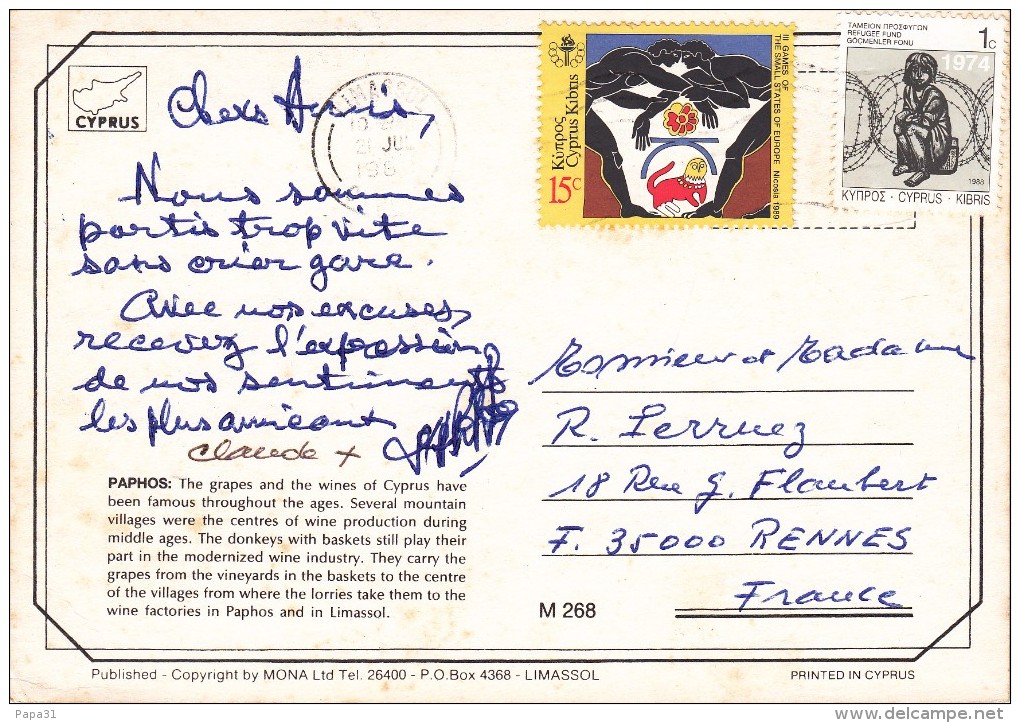 CYPRUS
Chers Amis,
Nous sommes
partis trop vite
sans crier gare.
Avec nos excuses,
recevez l'expression
de nos sentiments
les plus amicaux
Claude +
PAPHOS: The grapes and the wines of Cyprus have
been famous throughout the ages. Several mountain
villages were the centres of wine production during
middle ages. The donkeys with baskets still play their
part in the modernized wine industry. They carry the
grapes from the vineyards in the baskets to the centre
of the villages from where the lorries take them to the
wine factories in Paphos and in Limassol.
LIMASSOL
21 JUL
198
Κύπρος
Cyprus Kıbrıs
15c
III GAMES OF
THE SMALL STATES OF EUROPE Nicosia 1989
ΤΑΜΕΙΟΝ ΠΡΟΣΦΥΓΩΝ
REFUGEE FUND
GÖÇMENLER FONU
1c
1974
1988
ΚΥΠΡΟΣ · CYPRUS · KIBRIS
Monsieur et Madame
R.
18 Rue G. Flaubert
F. 35000 RENNES
France
M 268
Published - Copyright by MONA Ltd Tel. 26400 - P.O.Box 4368 - LIMASSOL
PRINTED IN CYPRUS
Papa31
http://www.delcampe.net